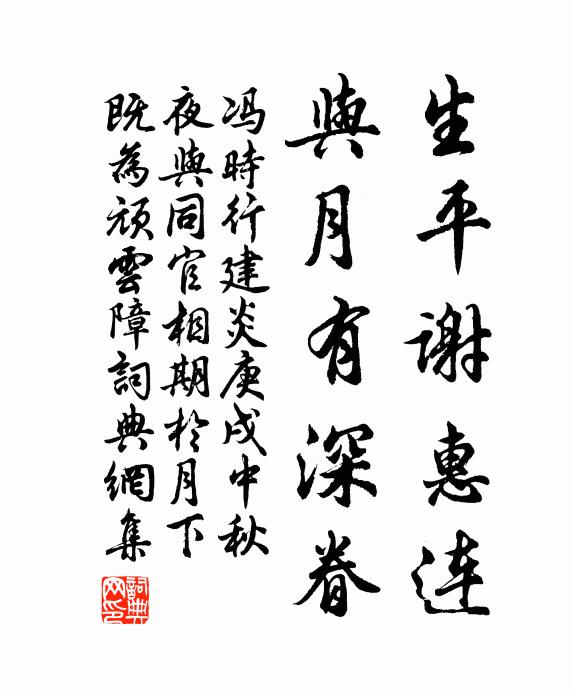 生平谢惠连
與月有深眷
冯時行建炎庚戌中秋
夜與同官相期於月下
既為頑雲障詞典網集
詞典网印